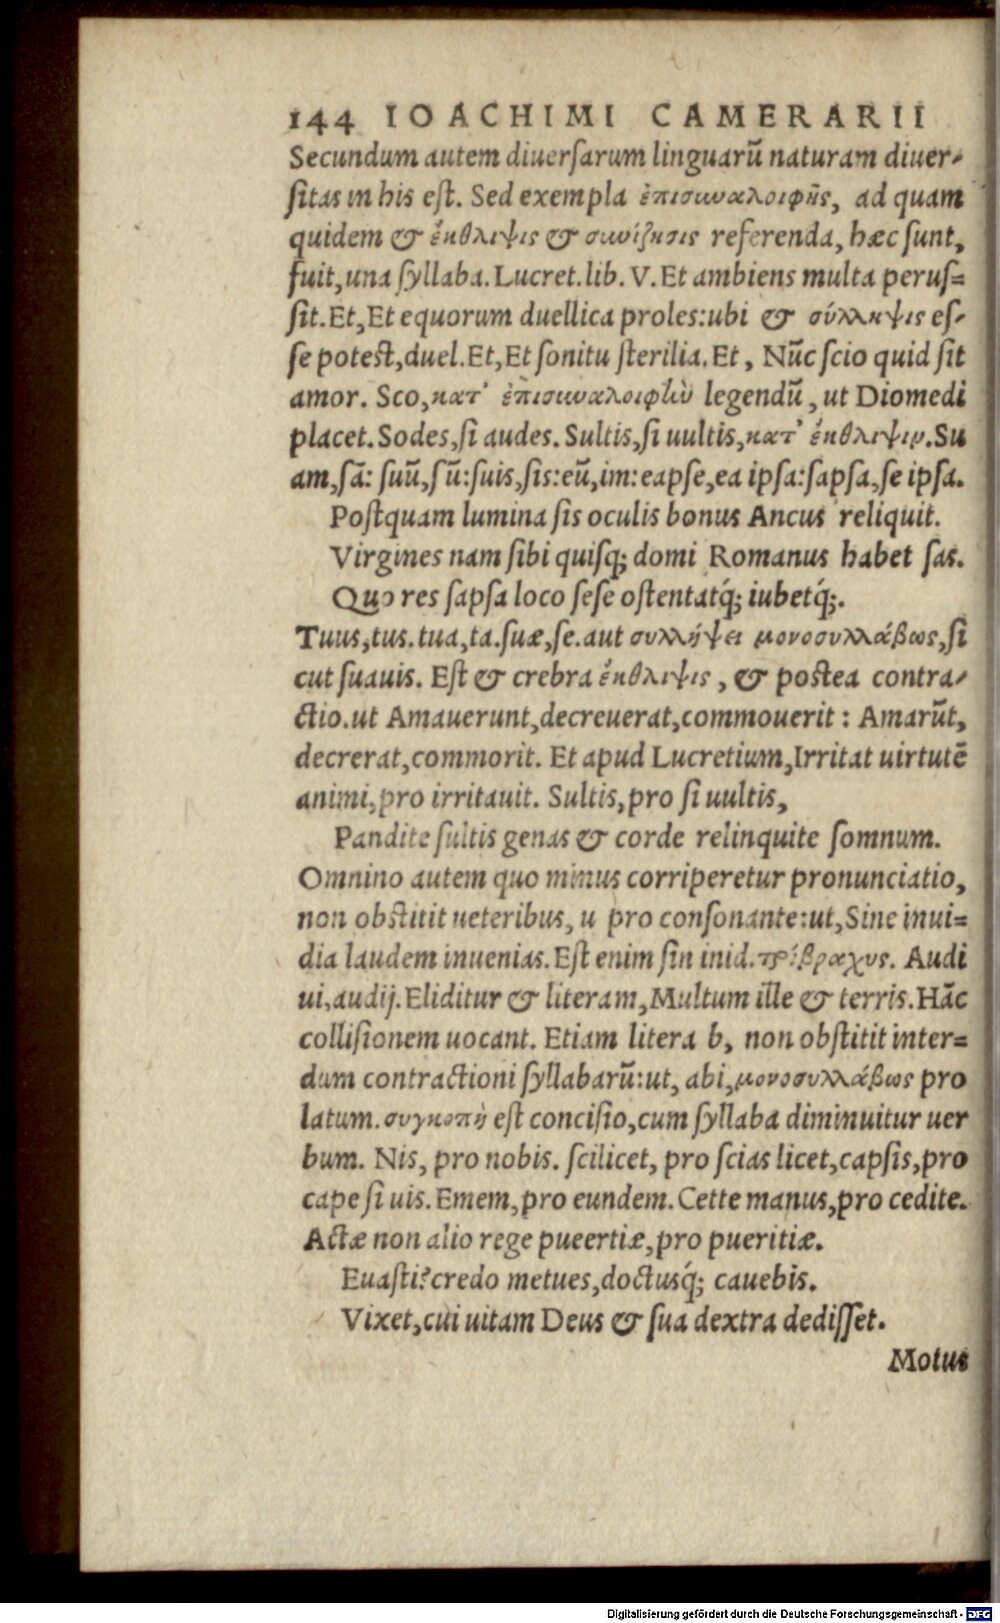 144 IOACHIMI CAMERARII
Secundum autem diuerſarum linguarū naturam diuer-
ſitas in his eſt. Sed exempla ἐπισυναλοιφῆς, ad quam
quidem & ἔκθλιψις & συνίζησις referenda, hæc ſunt,
fuit, una ſyllaba. Lucret. lib. V. Et ambiens multa peruſ=
ſit. Et, Et equorum duellica proles: ubi & σύλληψις eſ-
ſe poteſt, duel. Et, Et ſonitu ſterilia. Et, Nūc ſcio quid ſit
amor. Sco, κατ' ἐπισυναλοιφὴν legendū, ut Diomedi
placet. Sodes, ſi audes. Sultis, ſi uultis, κατ' ἔκθλιψιν. Su
am, ſā: ſuū, ſū: ſuis, ſis: eū, im: eapſe, ea ipſa: ſapſa, ſe ipſa.
Poſtquam lumina ſis oculis bonus Ancus reliquit.
Virgines nam ſibi quiſq; domi Romanus habet ſas.
Quo res ſapſa loco ſeſe oſtentatq́; iubetq́;.
Tuus, tus. tua, ta. ſuæ, ſe. aut συλλήψει μονοσυλλάβως, ſi
cut ſuauis. Eſt & crebra ἔκθλιψις, & poſtea contra-
ctio. ut Amauerunt, decreuerat, commouerit: Amarūt,
decrerat, commorit. Et apud Lucretium, Irritat uirtutē
animi, pro irritauit. Sultis, pro ſi uultis,
Pandite ſultis genas & corde relinquite ſomnum.
Omnino autem quo minus corriperetur pronunciatio,
non obſtitit ueteribus, u pro conſonante: ut, Sine inui=
dia laudem inuenias. Eſt enim ſin inid. τρίβραχυς. Audi
ui, audij. Eliditur & literam, Multum ille & terris. Hāc
colliſionem uocant. Etiam litera b, non obſtitit inter=
dum contractioni ſyllabarū: ut, abi, μονοσυλλάβως pro
latum. συγκοπὴ eſt conciſio, cum ſyllaba diminuitur uer
bum. Nis, pro nobis. ſcilicet, pro ſcias licet, capſis, pro
cape ſi uis. Emem, pro eundem. Cette manus, pro cedite.
Actæ non alio rege pueertiæ, pro pueritiæ.
Euaſti? credo metues, doctusq́; cauebis.
Vixet, cui uitam Deus & ſua dextra dediſſet.
Motus
Digitalisierung gefördert durch die Deutsche Forschungsgemeinschaft - DFG